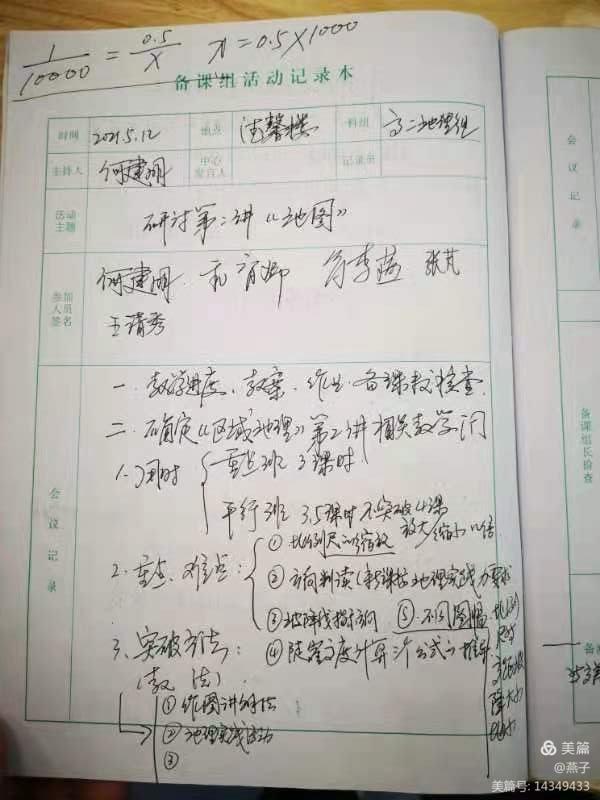 1/10000 = 0.5/x x=0.5×1000
备课组活动记录本
时间 2021.5.12 地点 清馨楼 科组 高二地理组
主持人 何建明 中心发言人 记录员
活动主题 研讨第二讲《地图》
参加人员签名 何建明 张芃
王清秀
会议记录
一、教学进度、教案、作业、备课教检查
二、确定《区域地理》第2讲相关教学
1、课时 重点班 3课时
平行班 3.5课时 不突破4课
2、重点、难点: ① 比例尺的缩放 放大缩小
② 方向判读(新课标地理实践力要求
③ 坡降线指示 ⑤ 不同图幅
3、突破方法: ④ 陡崖高度计算 公式的推导
(教法)
① 作图讲解法
② 地理实践活动
③
会议记录
备课组长检查
美篇
@燕子
美篇号: 14349433